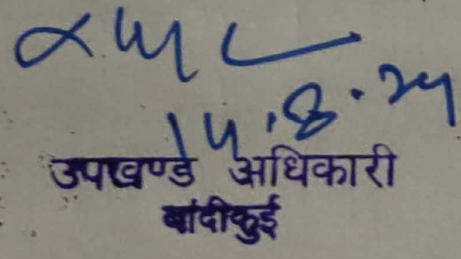 14.8.24
उपखण्ड अधिकारी
बांदीकुई